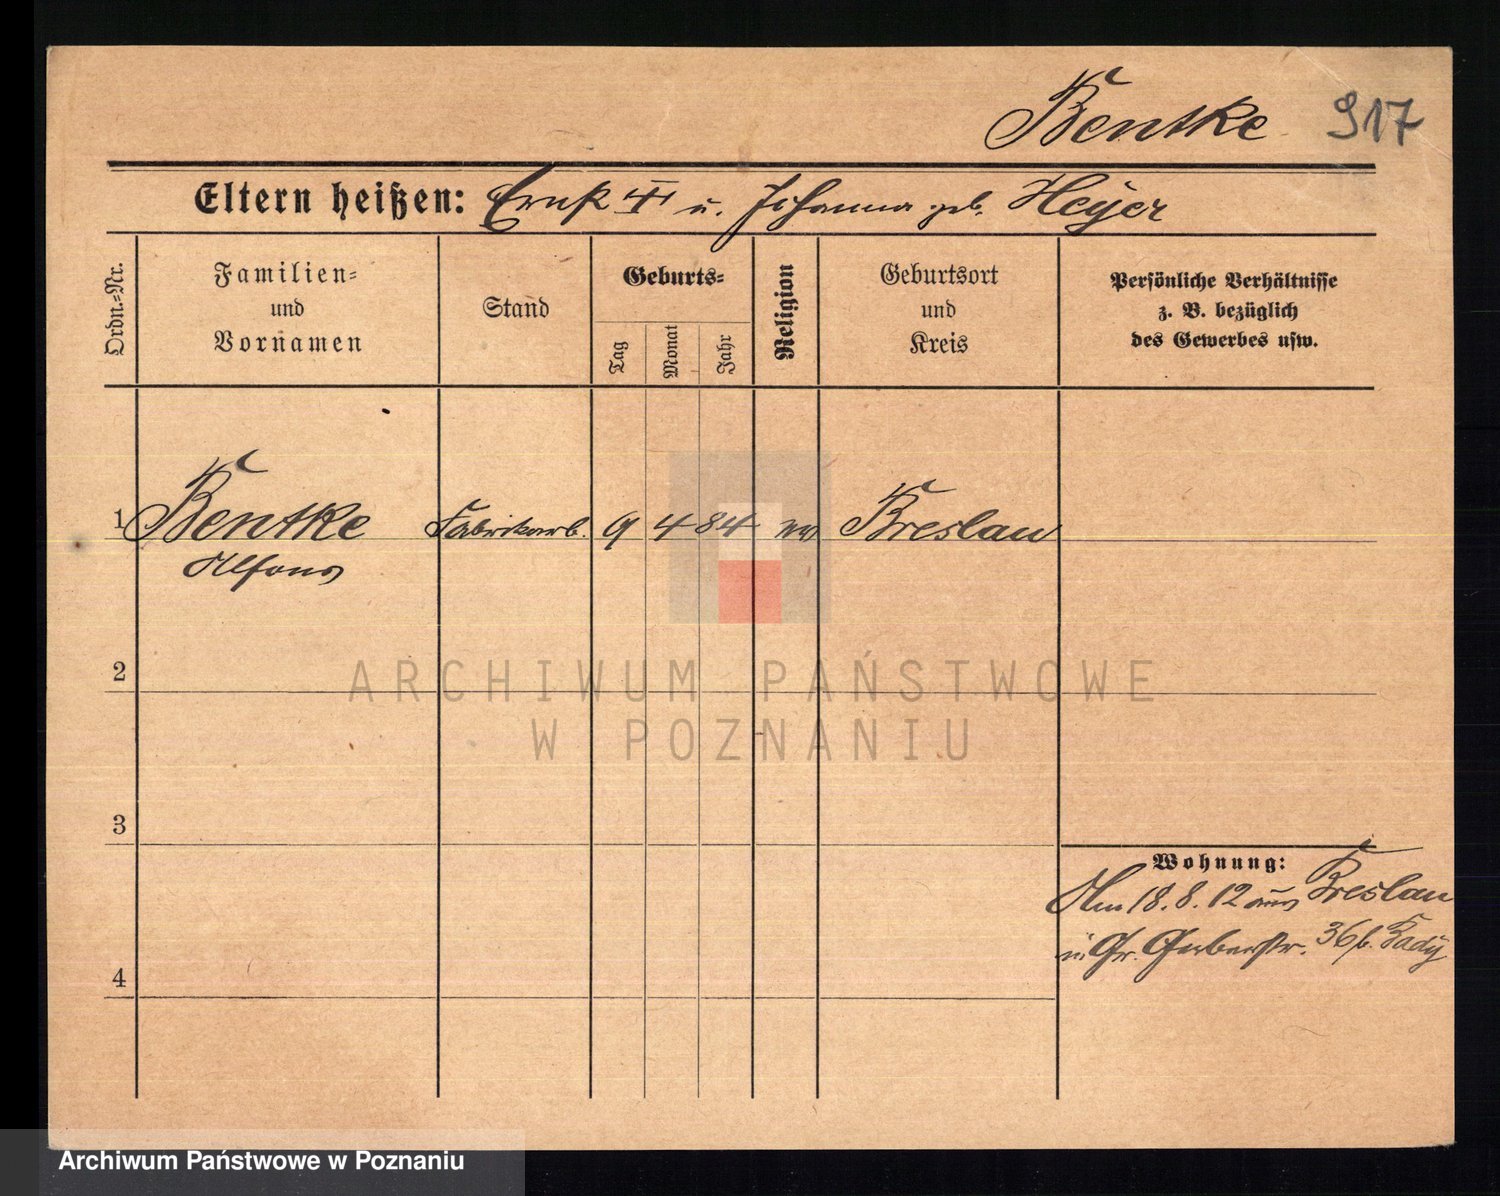 Bentke 917
Eltern heißen: Ernst u. Johanna geb. Heyer
Ordn.=Nr.
Familien=
und
Vornamen
Stand
Geburts=
Tag
Monat
Jahr
Religion
Geburtsort
und
Kreis
Persönliche Verhältnisse
z. B. bezüglich
des Gewerbes usw.
1 Bentke Fabrikarb. 9 4 84 Breslau
Alfons
2
3
4
Wohnung:
Am 18.8.12 aus Breslau
Gr. Gerberstr. 36 b.
ARCHIWUM PAŃSTWOWE
W POZNANIU
Archiwum Państwowe w Poznaniu